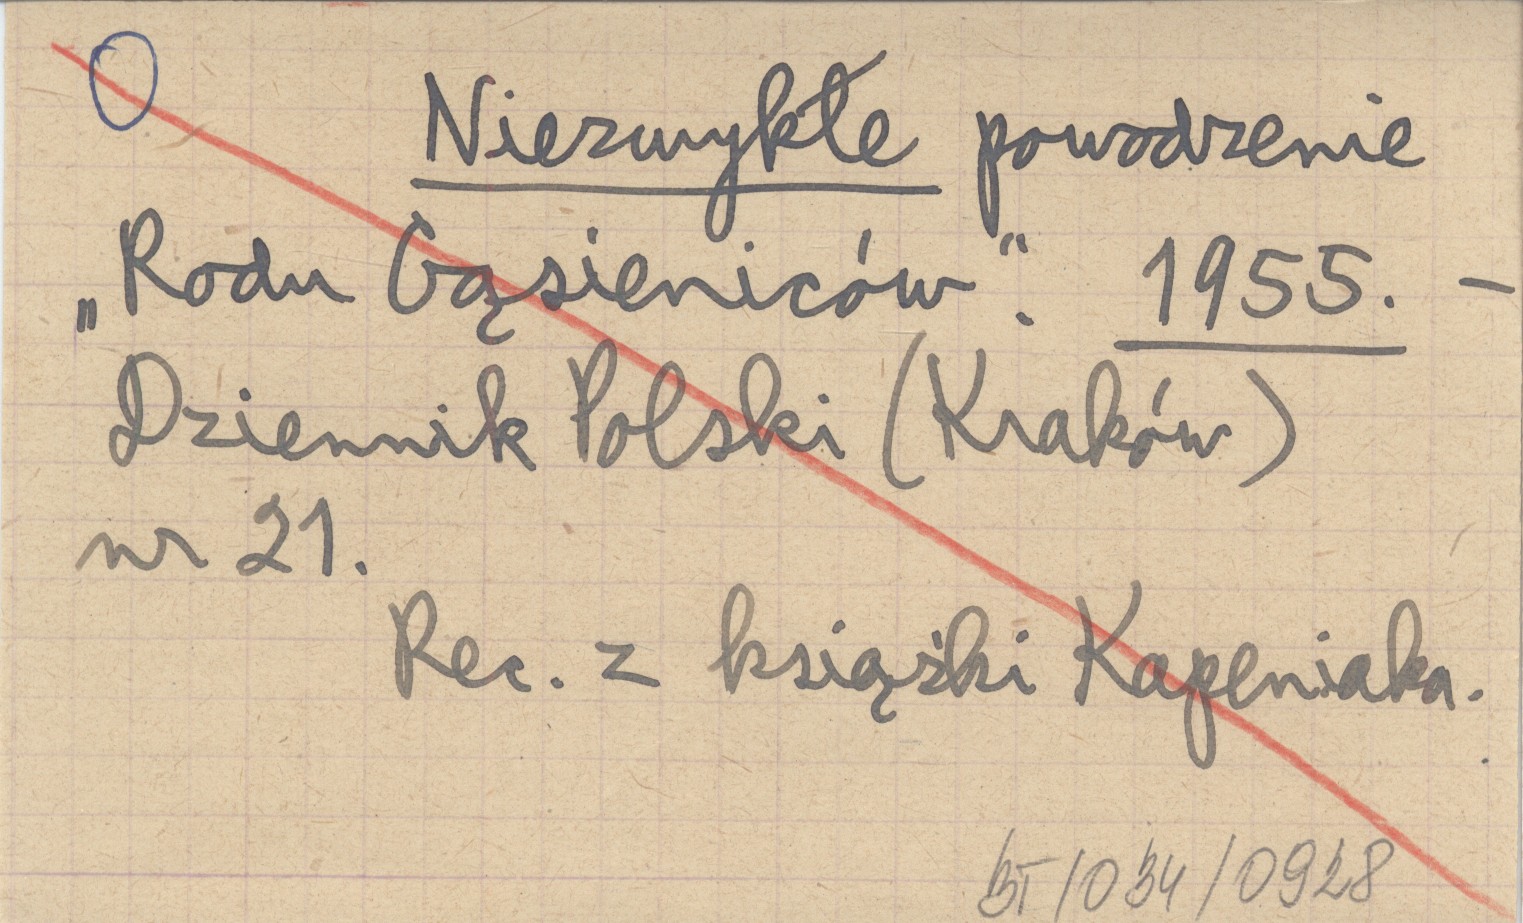 Niezwykłe powodzenie
„Rodu Gąsieniców“. 1955. –
Dziennik Polski (Kraków)
nr 21.
Rec. z książki Kapeniaka.
BT/034/0928